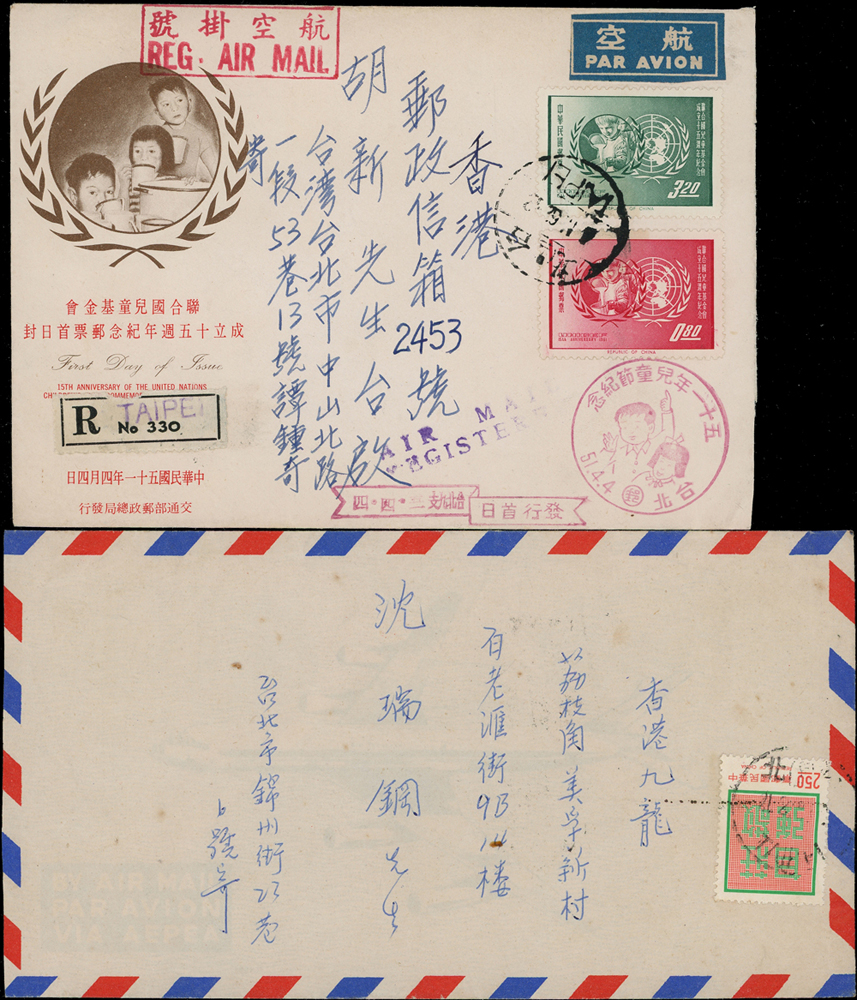 航空掛號
REG. AIR MAIL
航空
PAR AVION
聯合國兒童基金會
成立十五週年紀念郵票首日封
First Day of Issue
15TH ANNIVERSARY OF THE UNITED NATIONS
R TAIPEI
No 330
中華民國五十一年四月四日
交通部郵政總局發行
香港
郵政信箱2453號
胡新先生台啟
台湾台北市中山北路
一段53巷13號譚鍾奇
寄
聯合國兒童基金會
成立十五週年紀念
中華民國郵票
3.20
REPUBLIC OF CHINA
聯合國兒童基金會
成立十五週年紀念
0.80
REPUBLIC OF CHINA
TAIPEI
AIR MAIL
REGISTERED
五十一年兒童節紀念
51.4.4
台北
郵
發行首日
香港九龍
荔枝角美孚新村
百老滙街9B14楼
沈瑞鋼先生
台北市錦州街23巷
6號寄
250
中華民國郵票
莊敬自強